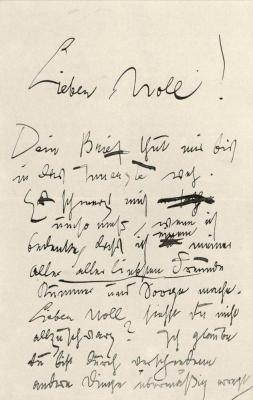 Lieber Moll!
Dein Brief thut mir bis
in das Innerste weh.
Es schmerzt mich
umso mehr, wenn ich
bedenke, dass ich meinen
aller aller liebsten Freunden
Kummer und Sorge mache.
Lieber Moll, siehst du nicht
allzuschwarz? Ich glaube
du bist durch verschiedene
andere Dinge übermäßig erregt